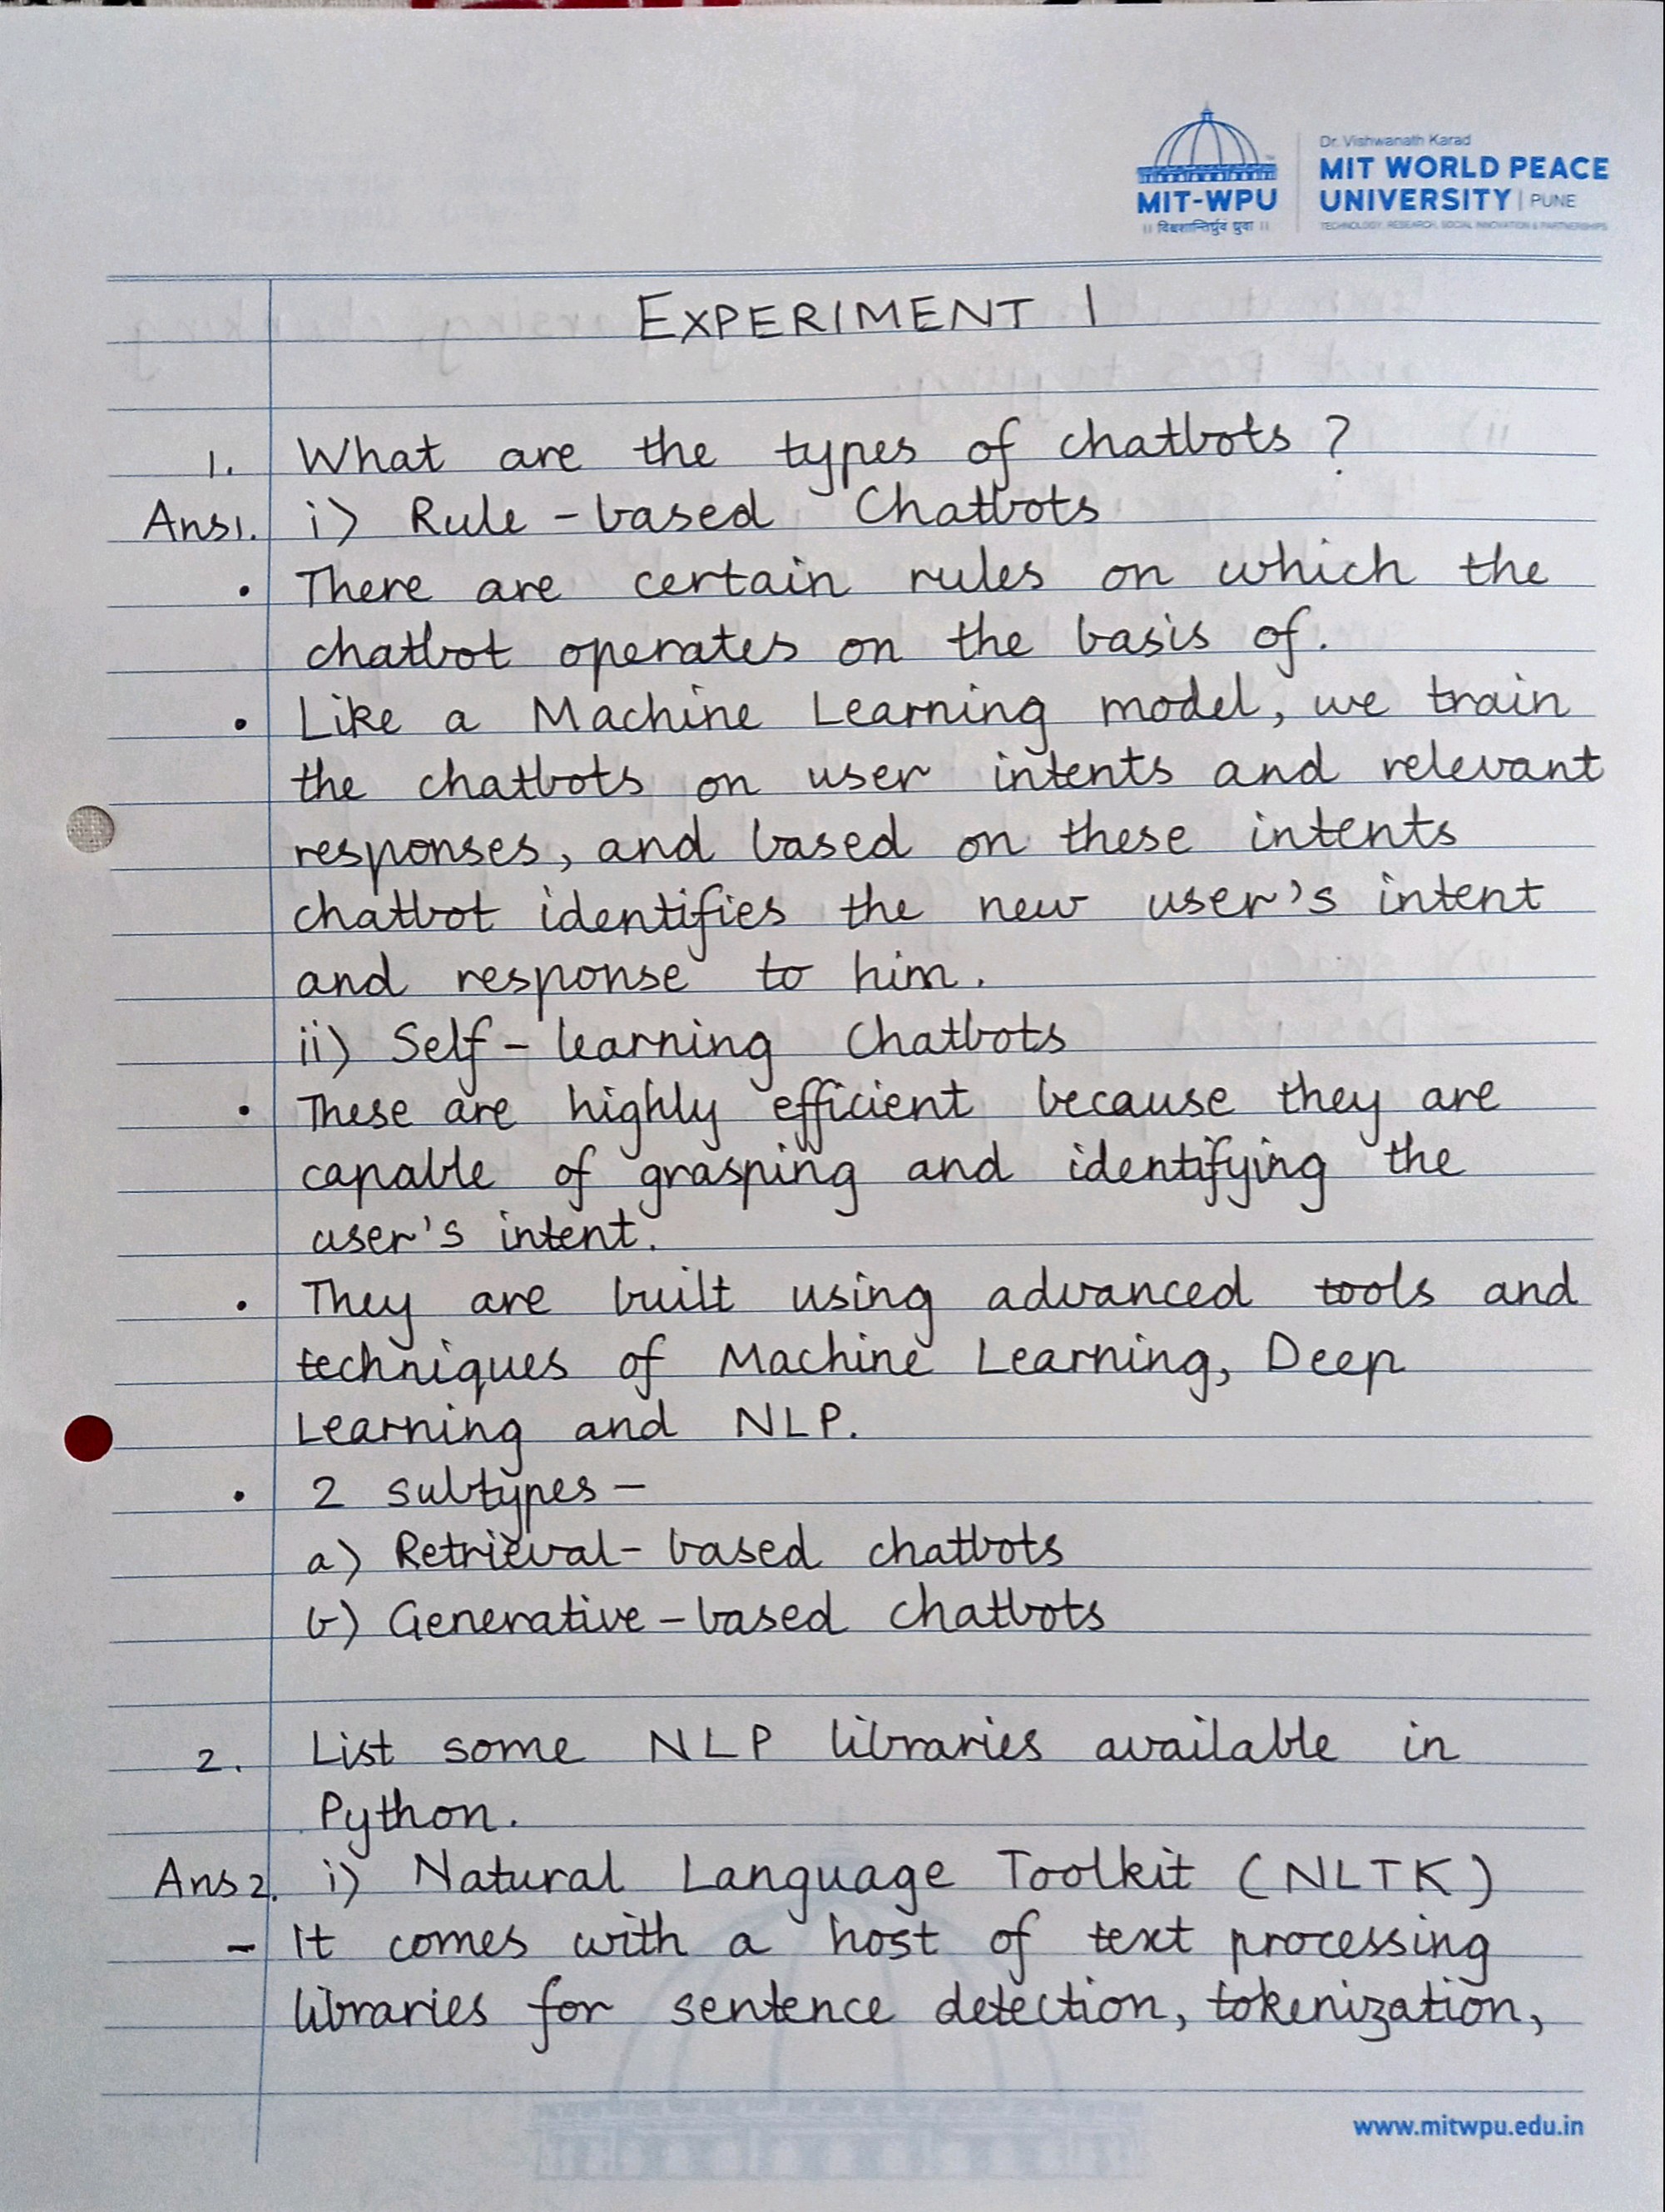 Dr. Vishwanath Karad
MIT WORLD PEACE
UNIVERSITY | PUNE
TECHNOLOGY, RESEARCH, SOCIAL INNOVATION & PARTNERSHIPS
MIT-WPU
EXPERIMENT 1
1. What are the types of chatbots ?
Ans1. i) Rule-based Chatbots
• There are certain rules on which the
chatbot operates on the basis of.
• Like a Machine Learning model, we train
the chatbots on user intents and relevant
responses, and based on these intents
chatbot identifies the new user's intent
and response to him.
ii) Self-learning Chatbots
• These are highly efficient because they are
capable of grasping and identifying the
user's intent.
• They are built using advanced tools and
techniques of Machine Learning, Deep
Learning and NLP.
• 2 subtypes -
a) Retrieval-based chatbots
b) Generative-based chatbots
2. List some NLP libraries available in
Python.
Ans2. i) Natural Language Toolkit (NLTK)
- It comes with a host of text processing
libraries for sentence detection, tokenization,
www.mitwpu.edu.in